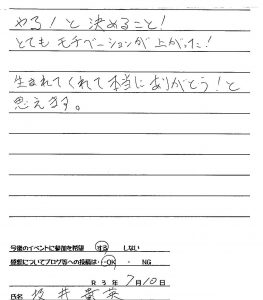 やろ！と決めること！
とても モチベーションが 上がった！
生まれてくれて本当にありがとう！と
思えます。
今後のイベントに参加を希望 する しない
感想についてブログ等への投稿は OK ・ NG
R 3 年 7月10日
氏名